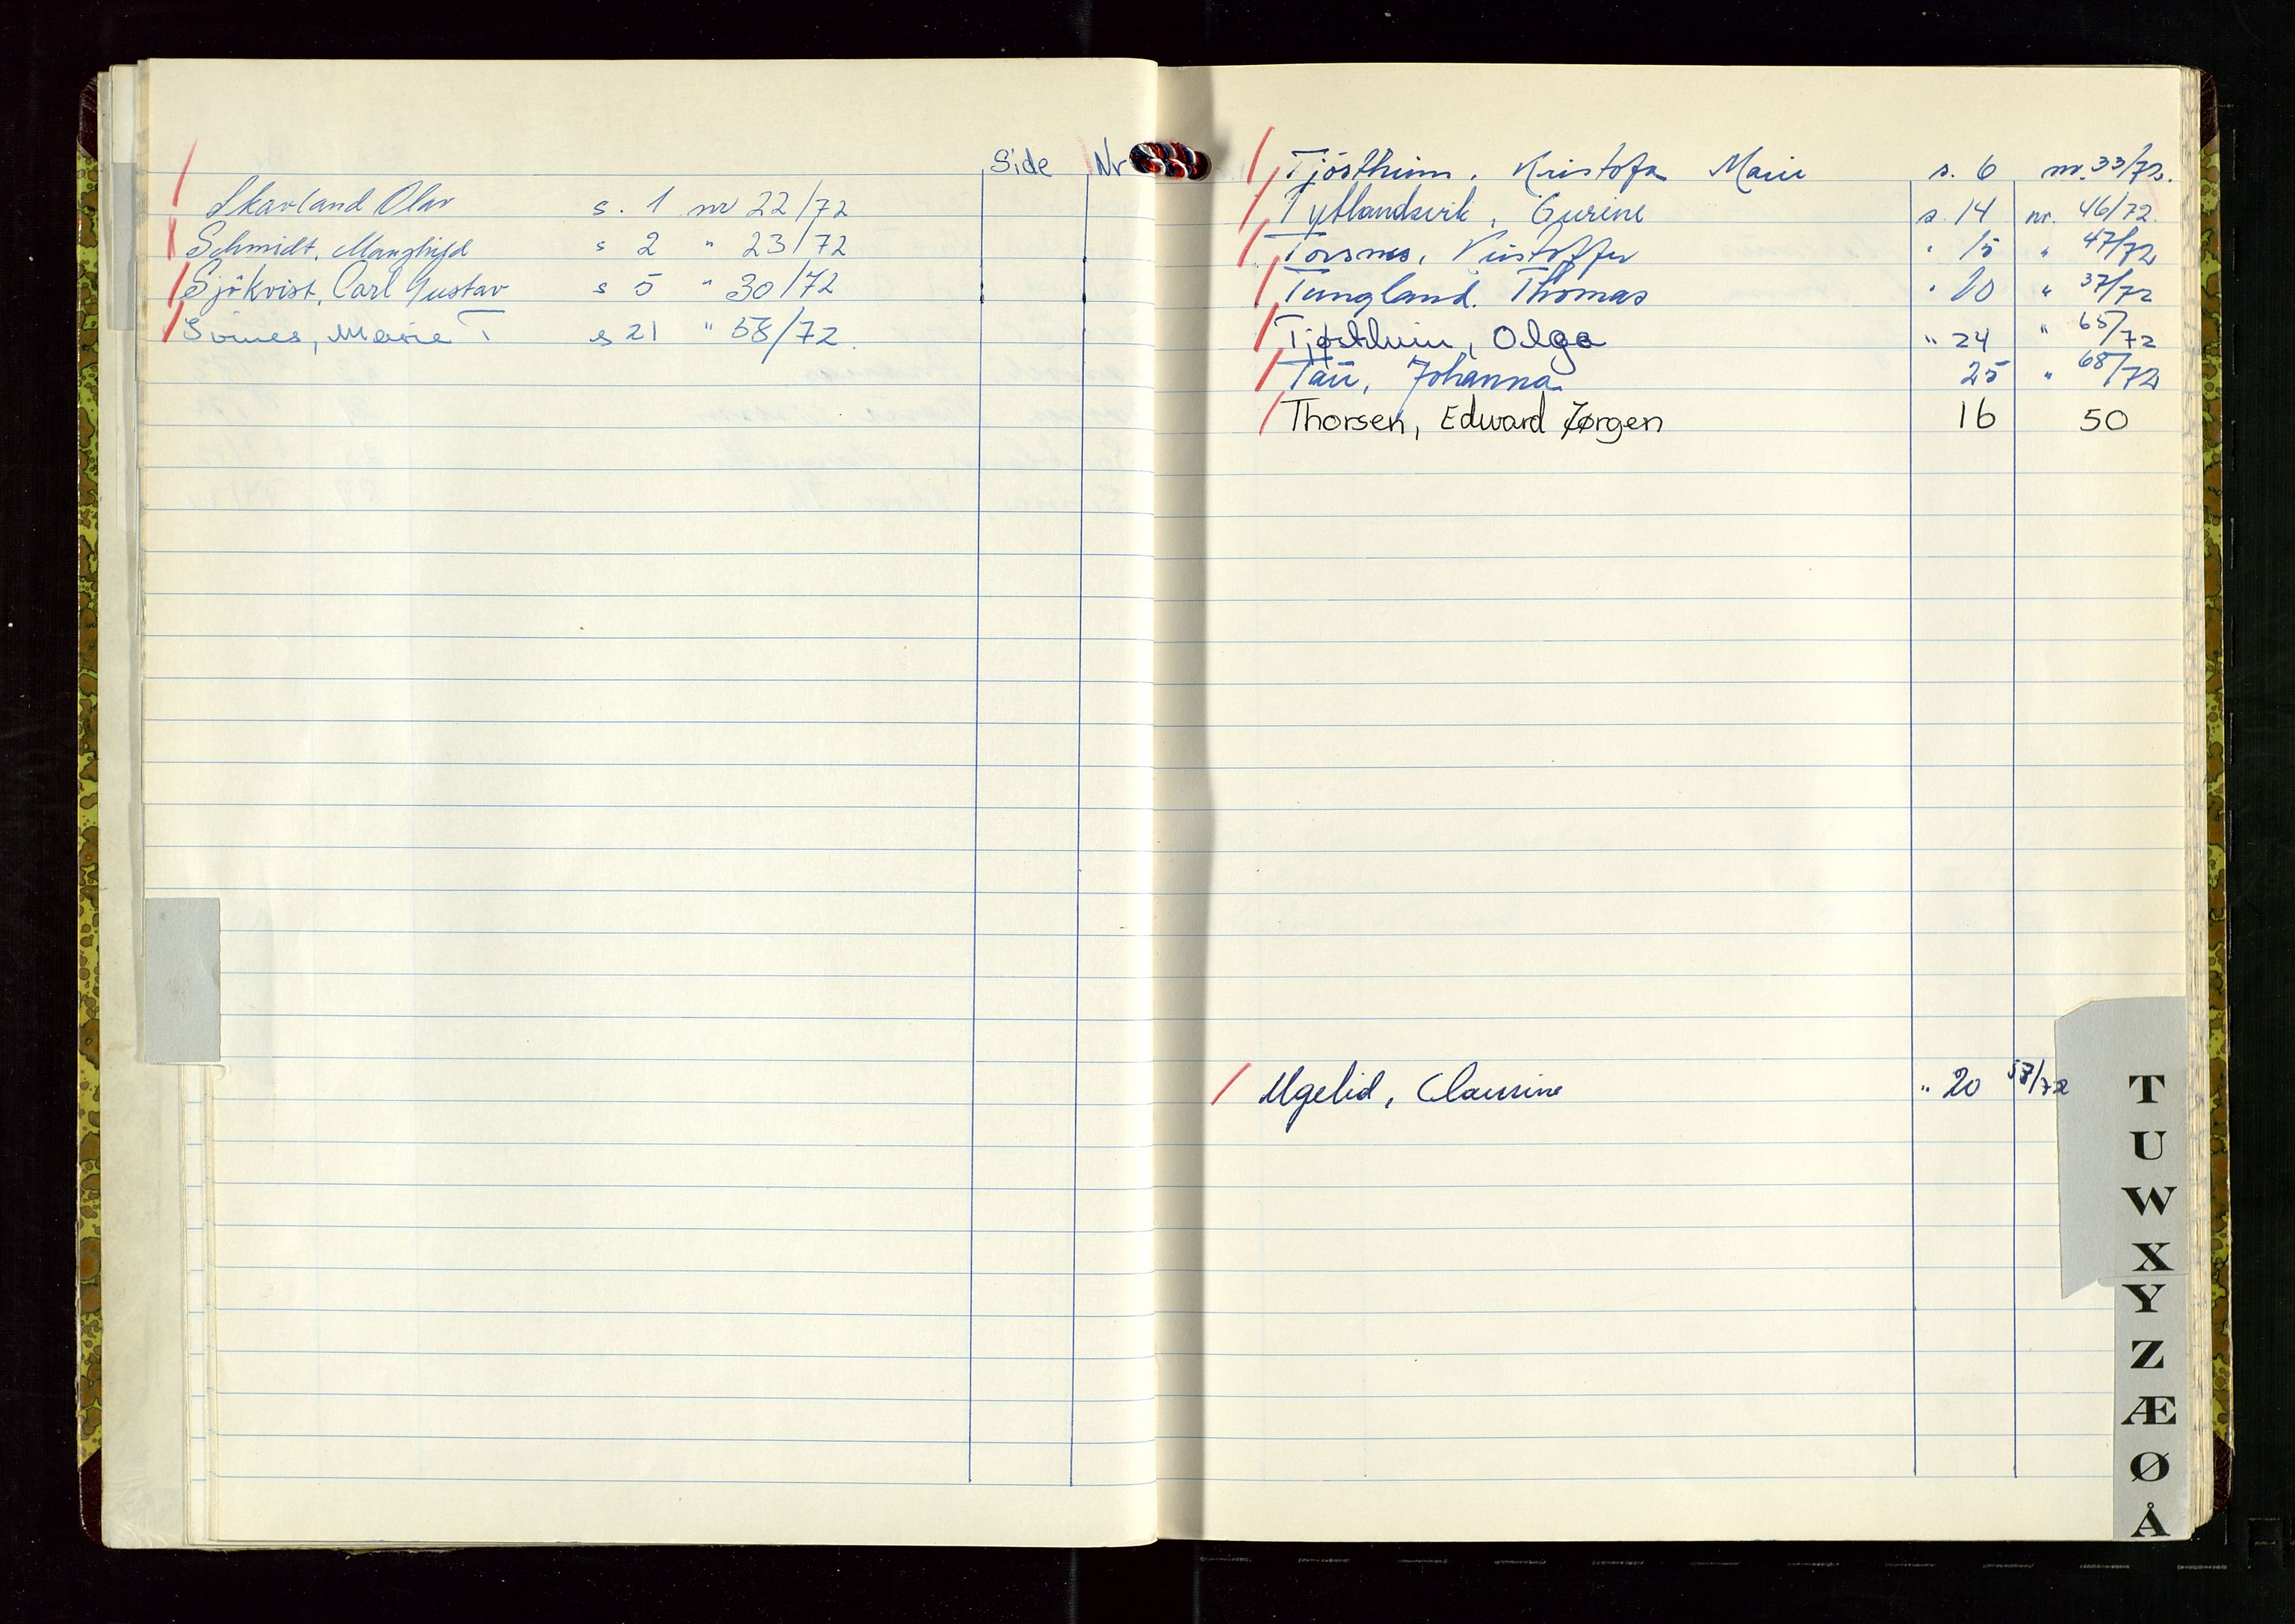 Side Nr
Skarland Olav s. 1 nr 22/72
Schmidt, Manghild s 2 " 23/72
Sjökvist, Carl Gustav s 5 " 30/72
Svines, Marie T s 21 " 58/72.
Tjöstheim, Kristofa Marie s. 6 nr. 33/72.
Tytlandsvik, Gurine s. 14 nr. 46/72.
Torsnes, Kristoffer " 15 " 47/72
Tungland. Thomas " 20 " 37/72
Tjøstheim, Olga " 24 " 65/72
Tau, Johanna 25 " 68/72
Thorsen, Edward Jørgen 16 50
Ugelid, Claurine " 20 57/72
T
U
W
X
Y
Z
Æ
Ø
Å